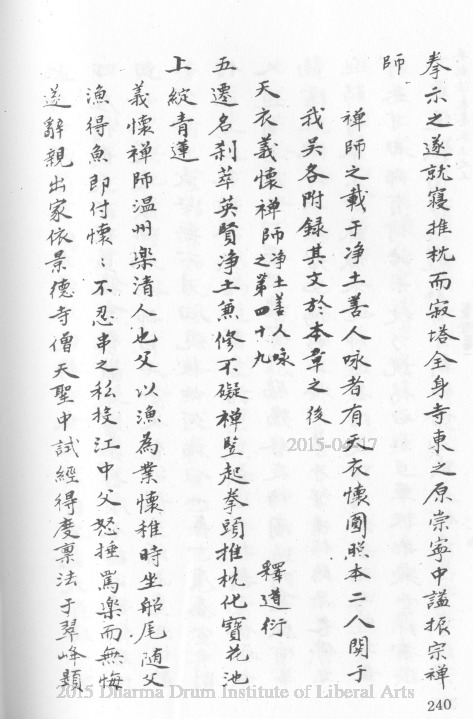 拳示之遂就寢推枕而寂塔全身寺東之原崇寧中謚振宗禪
師
禪師之載于净土善人咏者有天衣懷圓照本二人関于
我吴各附録其文於本章之後
天衣義懷禪師净土善人咏之第四十九
釋道衍
五遷名刹萃英賢净土兼修不礙禪豎起拳頭推枕化寶花池
上綻青蓮
義懷禪師温州樂清人也父以漁為業懷稚時坐船尾随父
漁得魚即付懷:不忍串之私投江中父怒捶罵樂而無悔
遂辭親出家依景德寺僧天聖中試經得度禀法于翠峰顯
2015-04-17
2015 Dharma Drum Institute of Liberal Arts
240